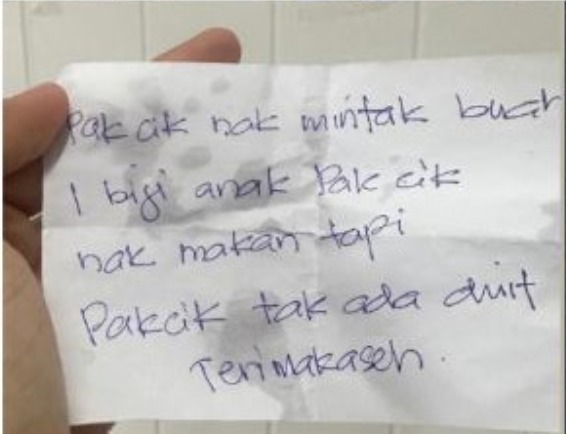 Pakcik nak mintak buat
1 biji anak Pakcik
nak makan tapi
Pakcik tak ada duit
Terimakaseh.